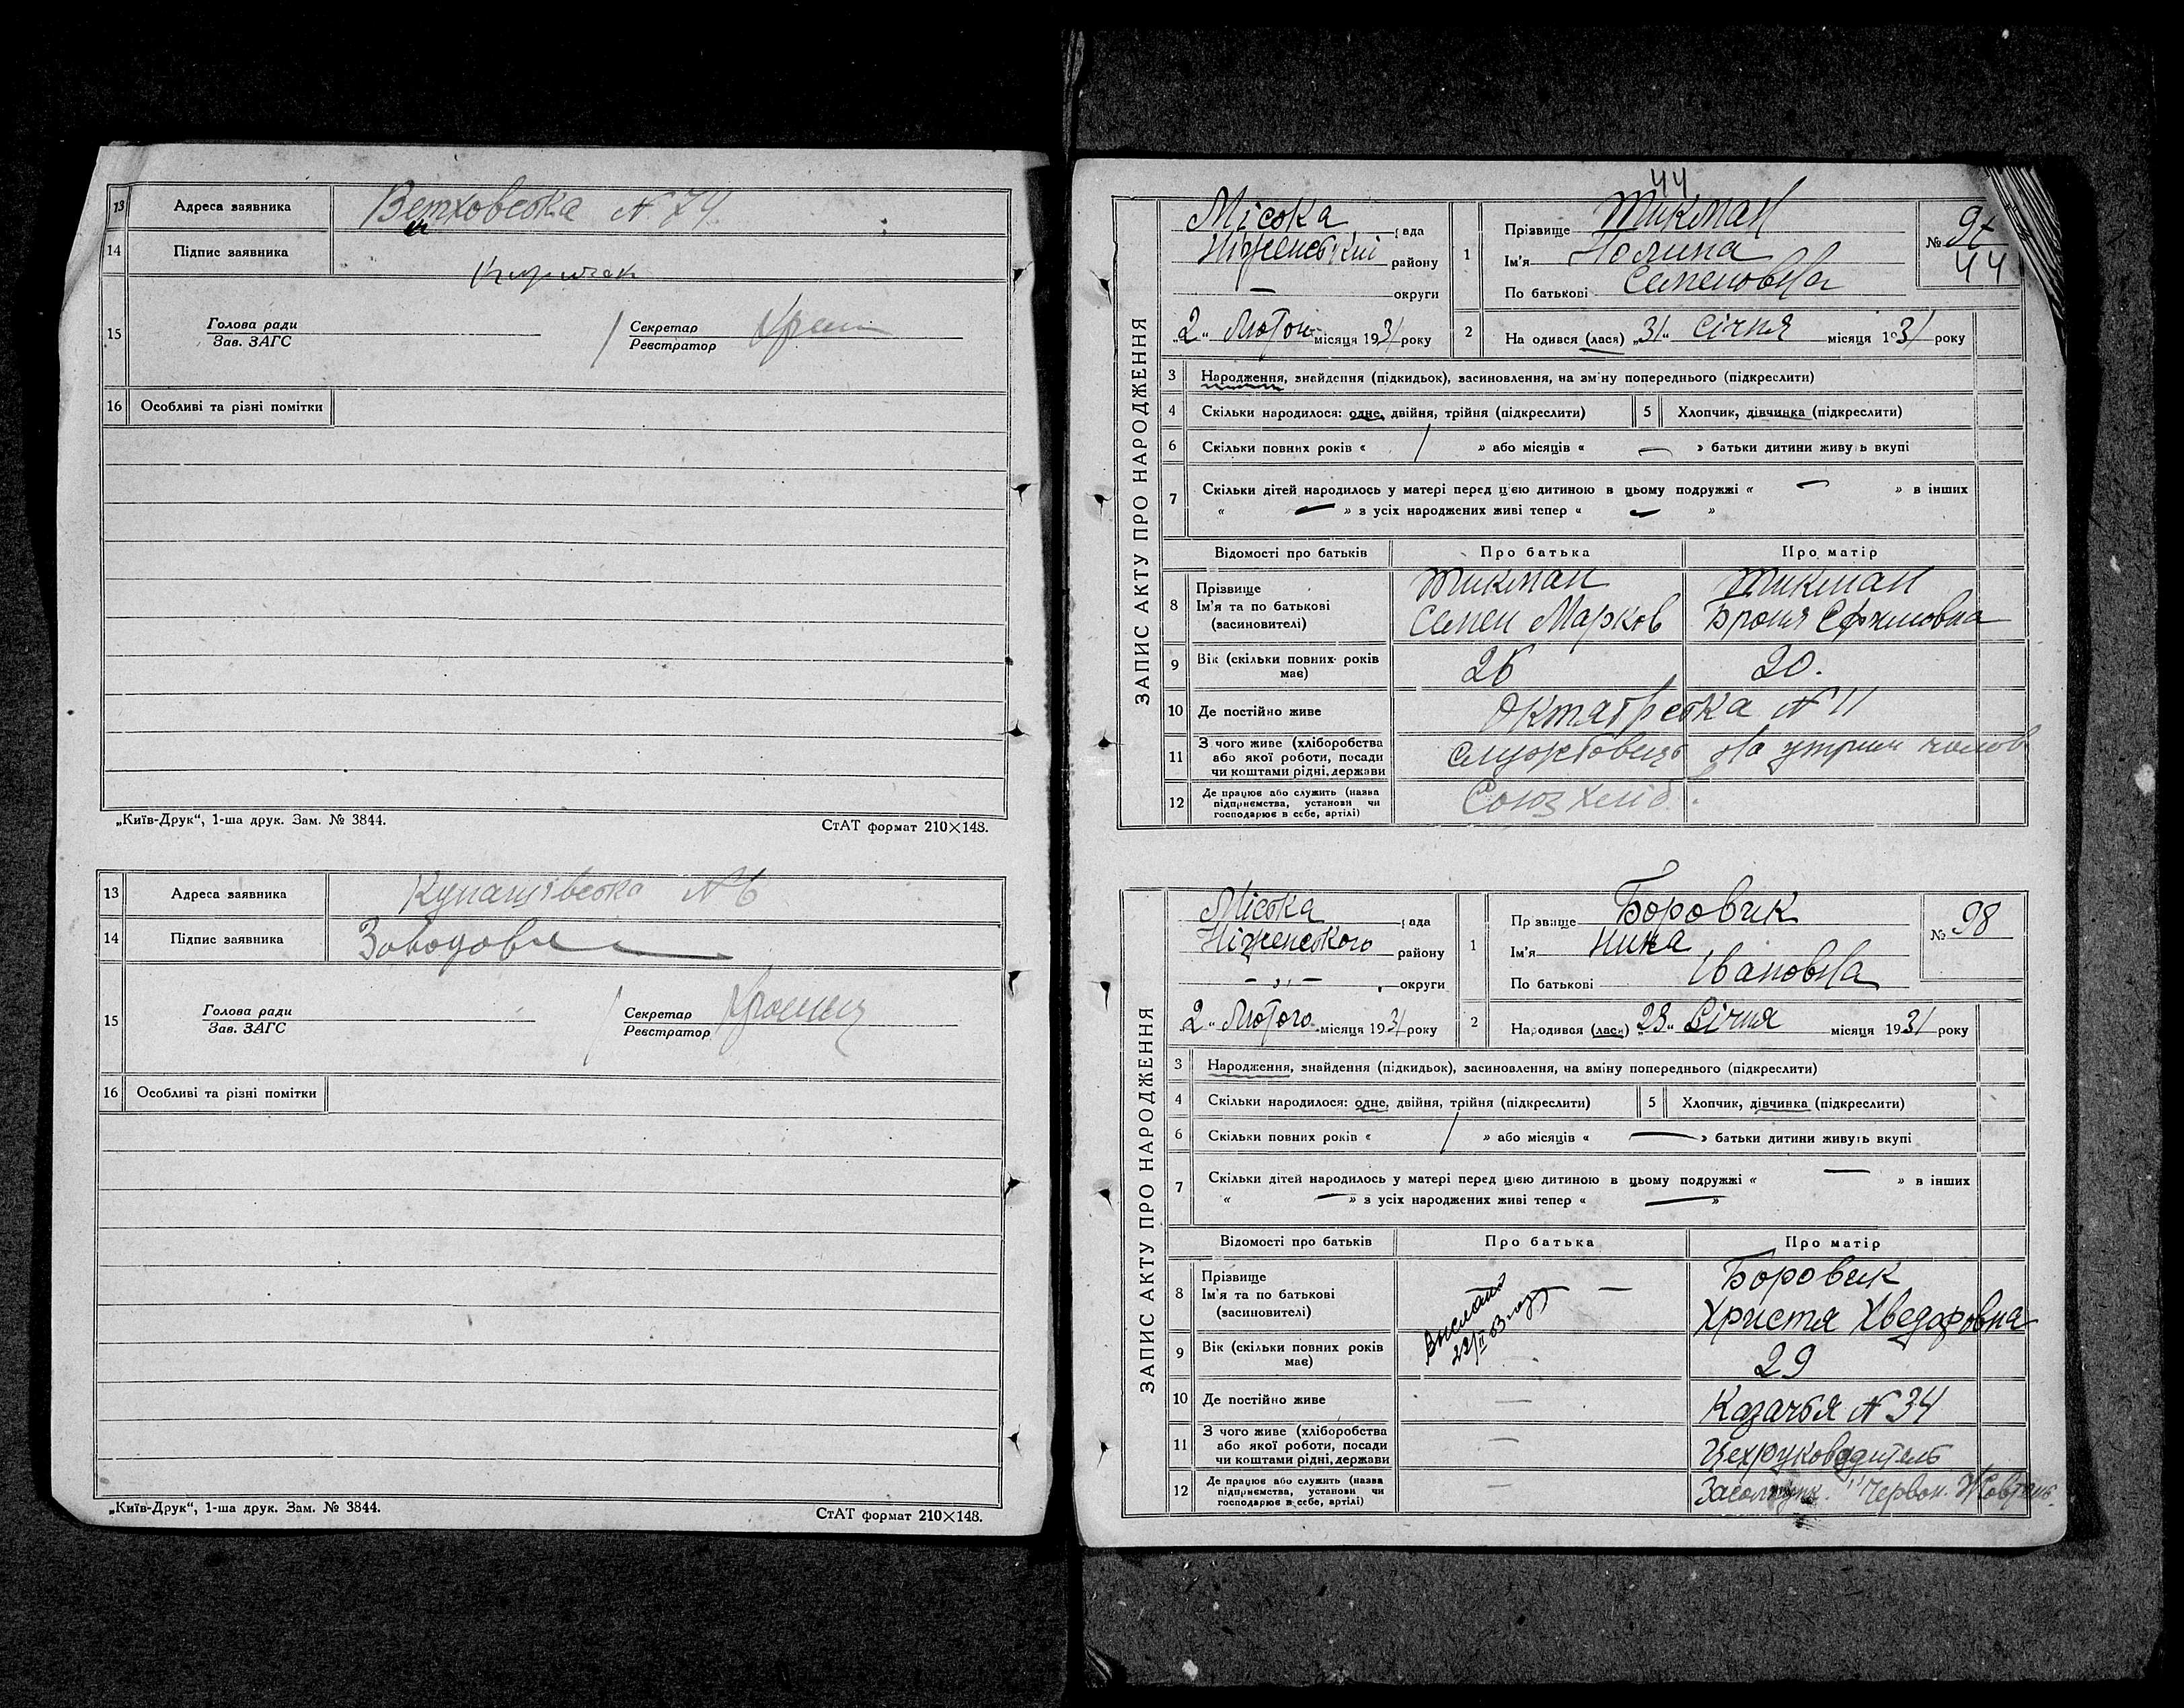 13 Адреса заявника Ветховеска № 74
14 Підпис заявника
15 Голова ради
Зав. ЗАГС
Секретар
Реєстратор
16 Особливі та різні помітки
„Київ-Друк“, 1-ша друк. Зам. № 3844. СтАТ формат 210×148.
13 Адреса заявника № 6
14 Підпис заявника
15 Голова ради
Зав. ЗАГС
Секретар
Реєстратор
16 Особливі та різні помітки
„Київ-Друк“, 1-ша друк. Зам. № 3844. СтАТ формат 210×148.
44
ЗАПИС АКТУ ПРО НАРОДЖЕННЯ
Міська рада
Ніженський району
— округи
„2“ Лютого місяця 1931 року
1 Прізвище Тикман
Ім'я Полина
По батькові Семеновна
№ 97
44
2 На одився (лася) „31“ Січня місяця 1931 року
3 Народження, знайдення (підкидьок), засиновлення, на зміну попереднього (підкреслити)
4 Скільки народилося: одне, двійня, трійня (підкреслити) 5 Хлопчик, дівчинка (підкреслити)
6 Скільки повних років « / » або місяців « — » батьки дитини живуть вкупі
7 Скільки дітей народилось у матері перед цією дитиною в цьому подружжі « — » в інших
« — » з усіх народжених живі тепер « — »
Відомості про батьків Про батька Про матір
8 Прізвище Тикман Тикман
Ім'я та по батькові Семен Марков Броня Ефимовна
(засиновителі)
9 Вік (скільки повних років має) 26 20.
10 Де постійно живе Октябреска № 11
11 З чого живе (хліборобства
або якої роботи, посади
чи коштами рідні, держави
службовець На утрим чолов
12 Де працює або служить (назва
підприємства, установи чи
господарює в себе, артілі)
Союзхліб.
ЗАПИС АКТУ ПРО НАРОДЖЕННЯ
Міска рада
Ніженського району
— „ — округи
„2“ Лютого місяця 1931 року
1 Прізвище Боровик
Ім'я Нина
По батькові Івановна
№ 98
2 Народився (лася) „23“ Січня місяця 1931 року
3 Народження, знайдення (підкидьок), засиновлення, на зміну попереднього (підкреслити)
4 Скільки народилося: одне, двійня, трійня (підкреслити) 5 Хлопчик, дівчинка (підкреслити)
6 Скільки повних років « / » або місяців « — » батьки дитини живуть вкупі
7 Скільки дітей народилось у матері перед цією дитиною в цьому подружжі « — » в інших
« — » з усіх народжених живі тепер « — »
Відомості про батьків Про батька Про матір
8 Прізвище — Боровик
Ім'я та по батькові Христя Хведоровна
(засиновителі)
22/II 63
9 Вік (скільки повних років має) — 29
10 Де постійно живе — Казачья № 34
11 З чого живе (хліборобства
або якої роботи, посади
чи коштами рідні, держави
— Цехруководитель
12 Де працює або служить (назва
підприємства, установи чи
господарює в себе, артілі)
— "Червон. Жовтень.